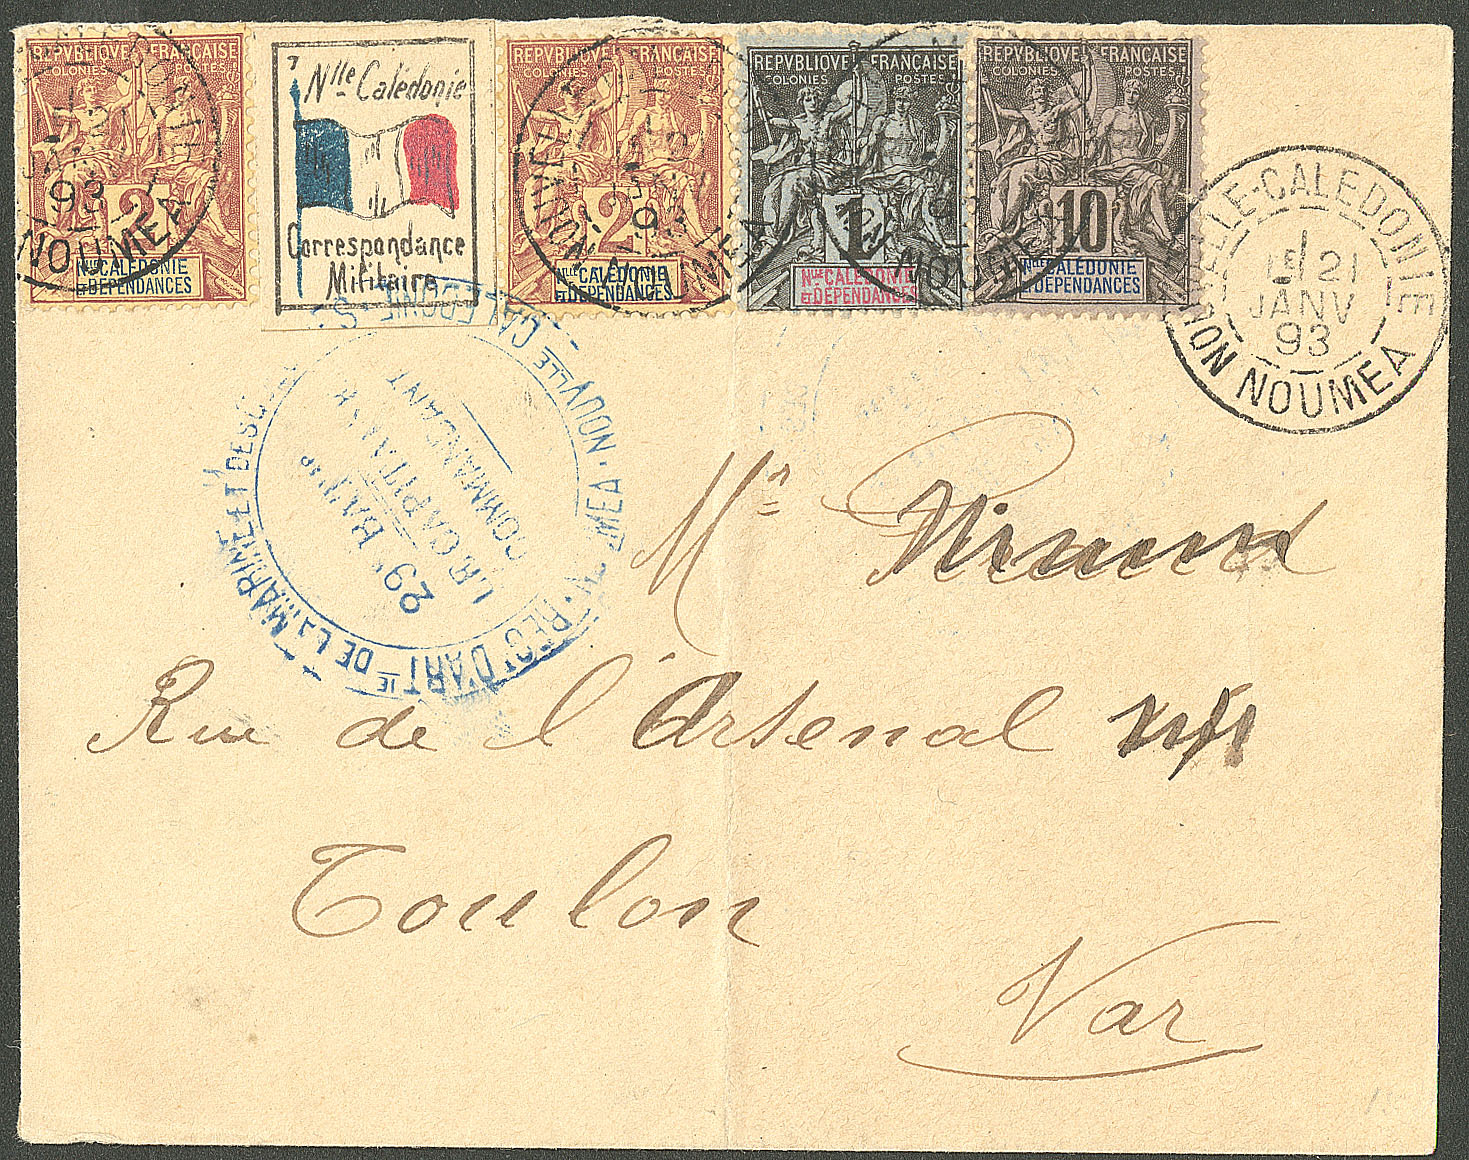 REPVBLIQVE FRANÇAISE
COLONIES POSTES
2
Nlle CALÉDONIE
ET DÉPENDANCES
93
NOUMEA
Nlle Calédonie
Correspondance
Militaire
REPVBLIQVE FRANÇAISE
COLONIES POSTES
2
Nlle CALÉDONIE
ET DÉPENDANCES
REPVBLIQVE FRANÇAISE
COLONIES POSTES
1
Nlle CALÉDONIE
ET DÉPENDANCES
REPVBLIQVE FRANÇAISE
COLONIES POSTES
10
Nlle CALÉDONIE
ET DÉPENDANCES
NOUVELLE-CALEDONIE
1E/21
JANV
93
NOUMEA
RÉGt D'ARTIE DE LA MARINE ET DES
NOUVLLE CALÉDONIE
29e BATie
LE CAPITAINE
COMMANDANT
Mr
Rue de l'Arsenal
Toulon
Var